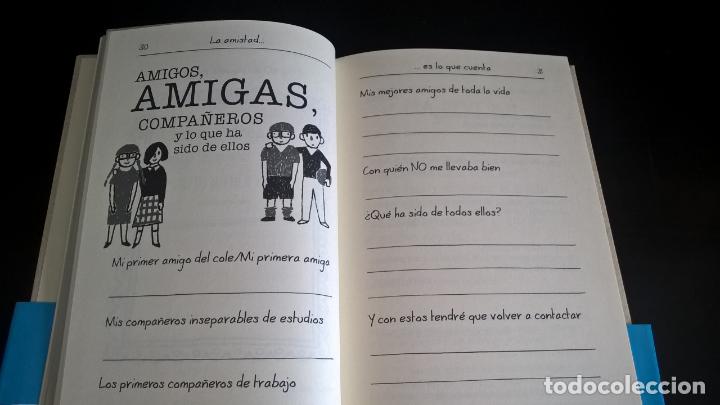 30
La amistad...
AMIGOS,
AMIGAS,
COMPAÑEROS
y lo que ha
sido de ellos
Mi primer amigo del cole/Mi primera amiga
Mis compañeros inseparables de estudios
Los primeros compañeros de trabajo
... es lo que cuenta
Mis mejores amigos de toda la vida
Con quién NO me llevaba bien
¿Qué ha sido de todos ellos?
Y con estos tendré que volver a contactar
todocoleccion